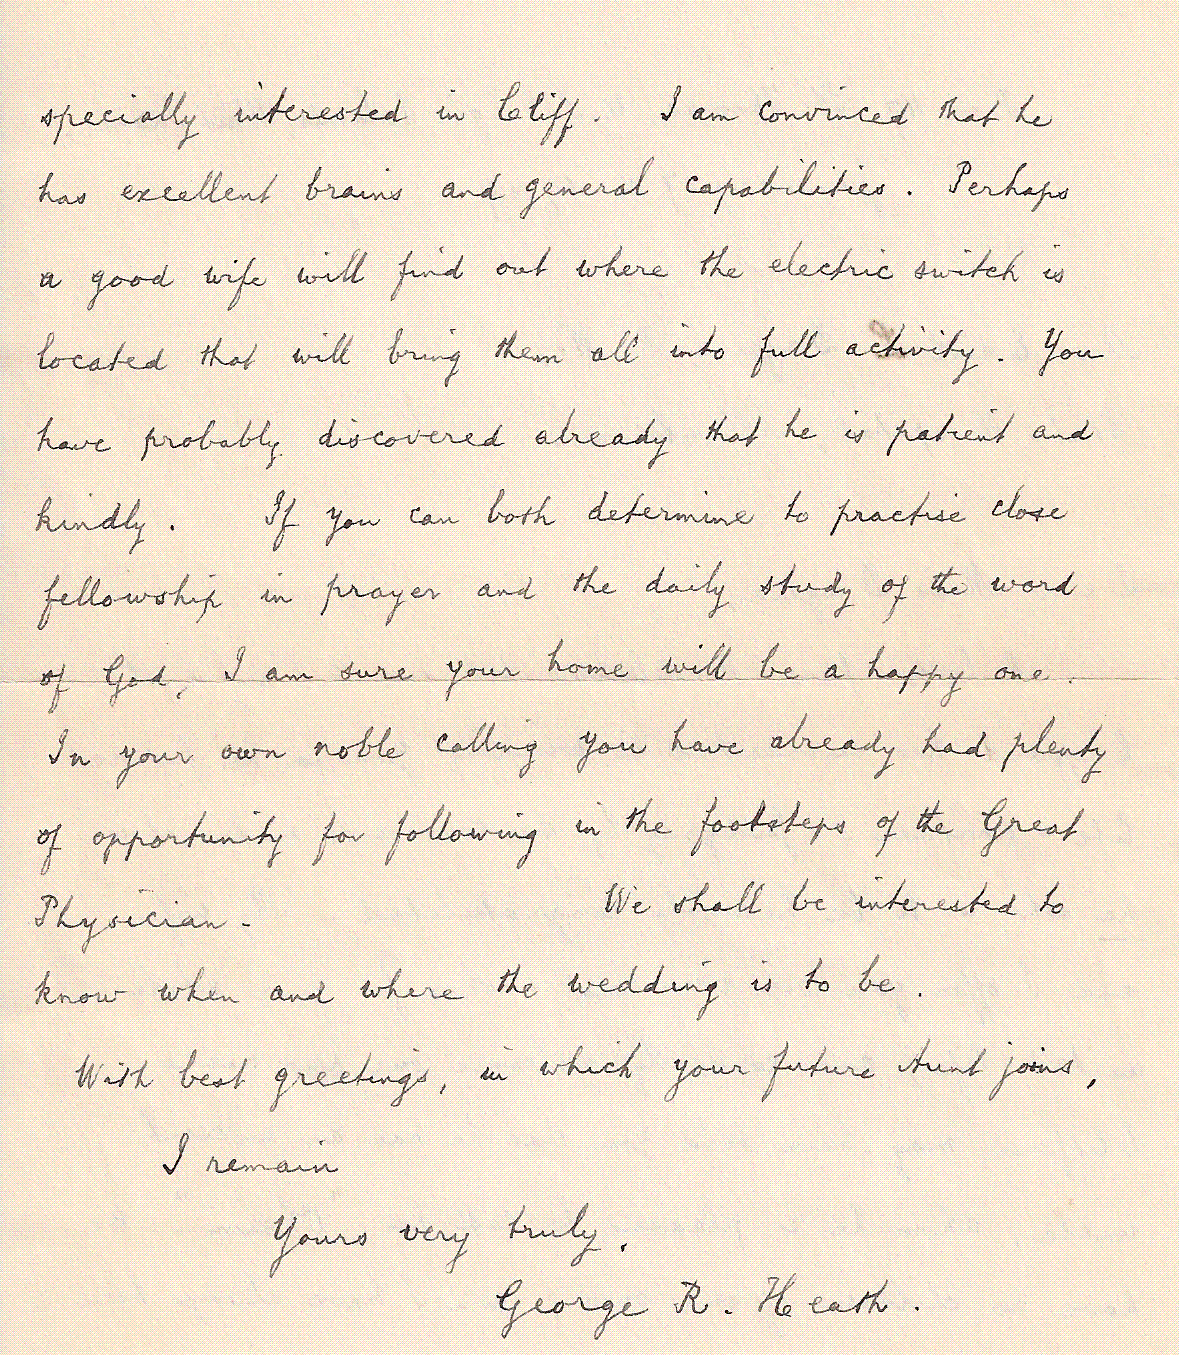 specially interested in Cliff. I am convinced that he
has excellent brains and general capabilities. Perhaps
a good wife will find out where the electric switch is
located that will bring them all into full activity. You
have probably discovered already that he is patient and
kindly. If you can both determine to practise close
fellowship in prayer and the daily study of the word
of God, I am sure your home will be a happy one.
In your own noble calling you have already had plenty
of opportunity for following in the footsteps of the Great
Physician. We shall be interested to
know when and where the wedding is to be.
With best greetings, in which your future Aunt joins,
I remain
Yours very truly,
George R. Heath.